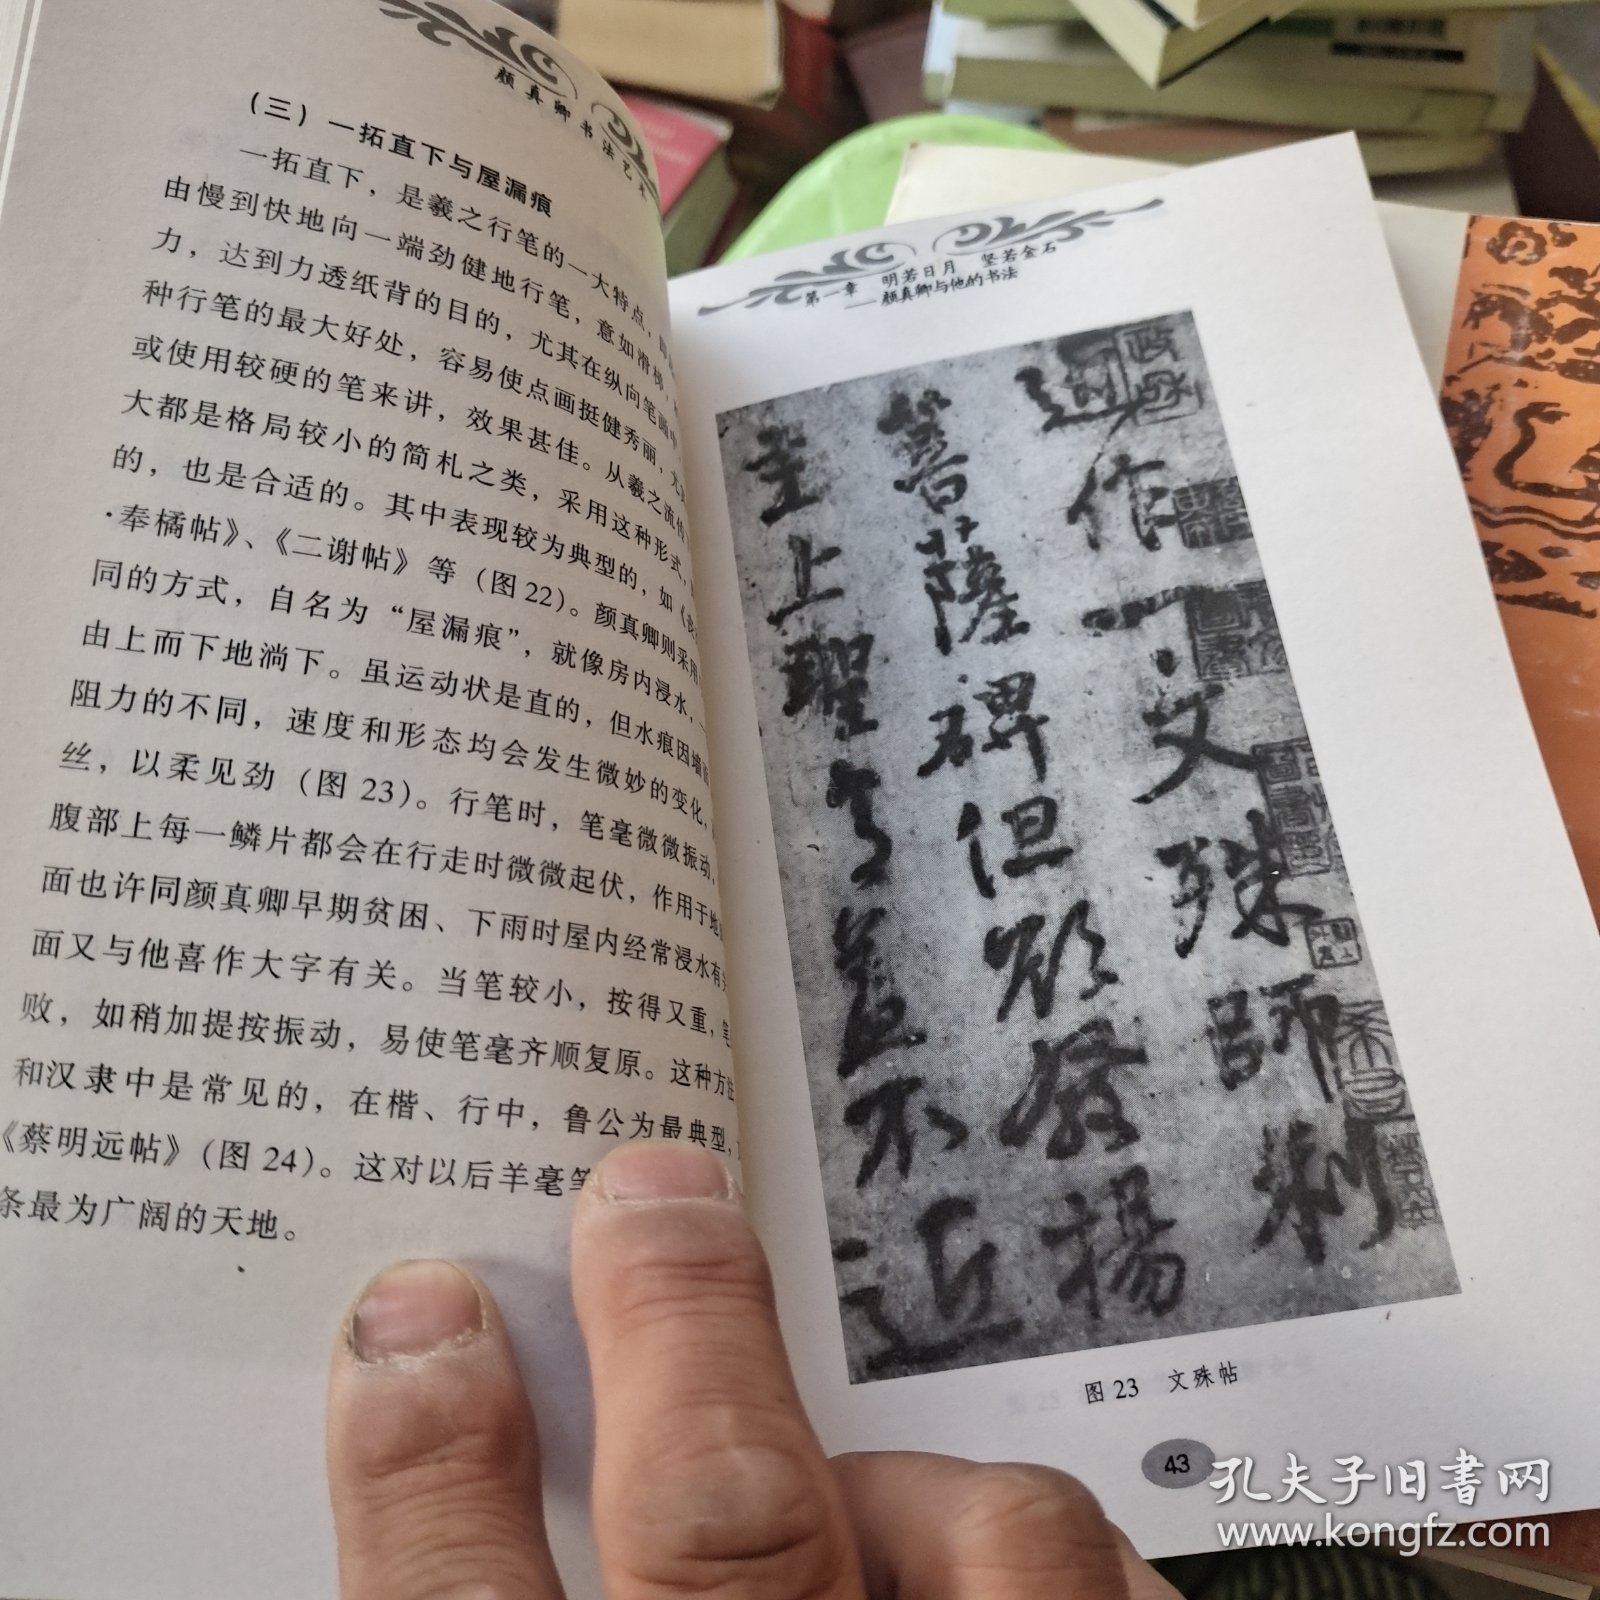 颜真卿书法艺术
（三）一拓直下与屋漏痕
一拓直下，是羲之行笔的一大特点，
由慢到快地向一端劲健地行笔，意如滑梯，
力，达到力透纸背的目的，尤其在纵向笔画中
种行笔的最大好处，容易使点画挺健秀丽，尤
或使用较硬的笔来讲，效果甚佳。从羲之流传
大都是格局较小的简札之类，采用这种形式，
的，也是合适的。其中表现较为典型的，如《丧
·奉橘帖》、《二谢帖》等（图22）。颜真卿则采用
同的方式，自名为“屋漏痕”，就像房内浸水，
由上而下地淌下。虽运动状是直的，但水痕因墙面
阻力的不同，速度和形态均会发生微妙的变化，
丝，以柔见劲（图23）。行笔时，笔毫微微振动，
腹部上每一鳞片都会在行走时微微起伏，作用于地
面也许同颜真卿早期贫困、下雨时屋内经常浸水有关
面又与他喜作大字有关。当笔较小，按得又重，笔
败，如稍加提按振动，易使笔毫齐顺复原。这种方法
和汉隶中是常见的，在楷、行中，鲁公为最典型，
《蔡明远帖》（图24）。这对以后羊毫笔
条最为广阔的天地。
第一章 明若日月 坚若金石
——颜真卿与他的书法
近作一文殊师利
菩萨碑但欲发扬
主上圣意盖不近
图23 文殊帖
43
孔夫子旧书网
www.kongfz.com